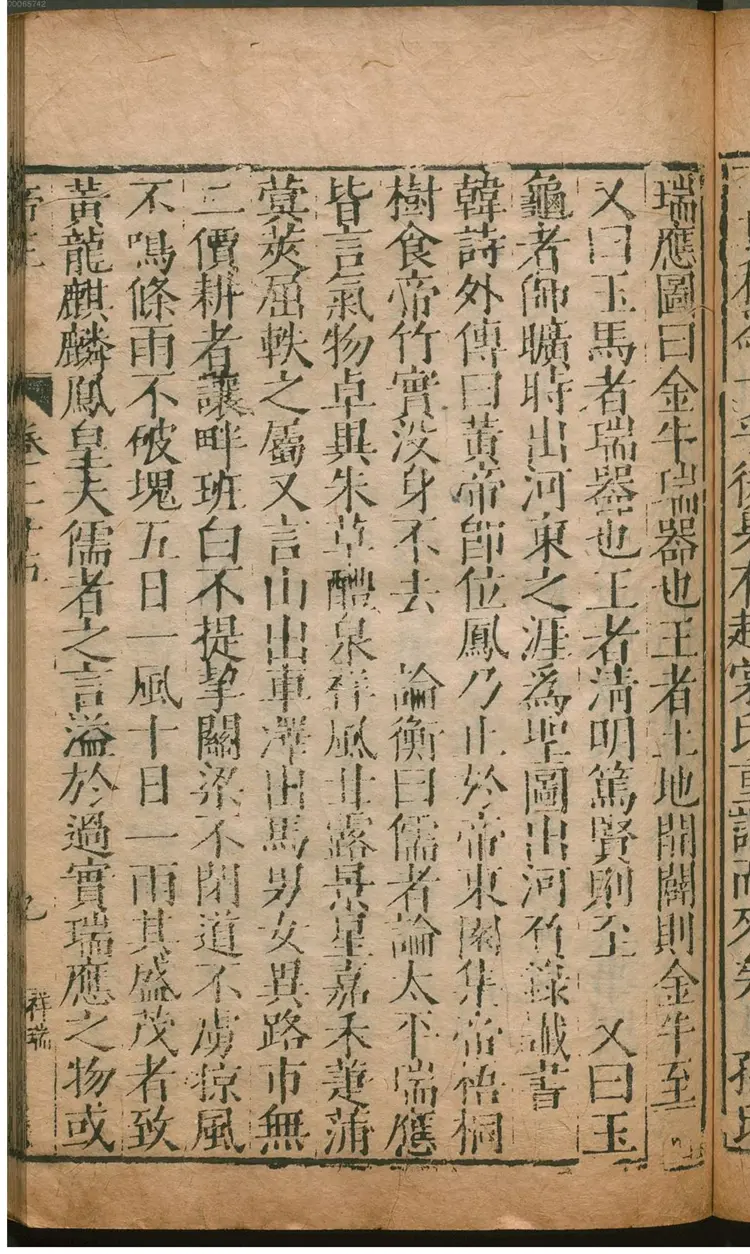 瑞應圖曰金牛瑞器也王者土地開闢則金牛至
又曰玉馬者瑞器也王者淸明篤賢則至　又曰玉
龜者師曠時出河東之涯爲聖圖出河負錄讖書
韓詩外傳曰黃帝卽位鳳乃止於帝東園集帝梧桐
樹食帝竹實没身不去　論衡曰儒者論太平瑞應
皆言氣物卓與朱草醴泉祥風甘露景星嘉禾萐蒲
蓂莢屈軼之屬又言山出車澤出馬男女異路市無
二價耕者讓畔班白不提挈關梁不閉道不虜掠風
不鳴條雨不破塊五日一風十日一雨其盛茂者致
黃龍麒麟鳳皇夫儒者之言溢於過實瑞應之物或
帝王 卷二十 九 祥瑞
00065742